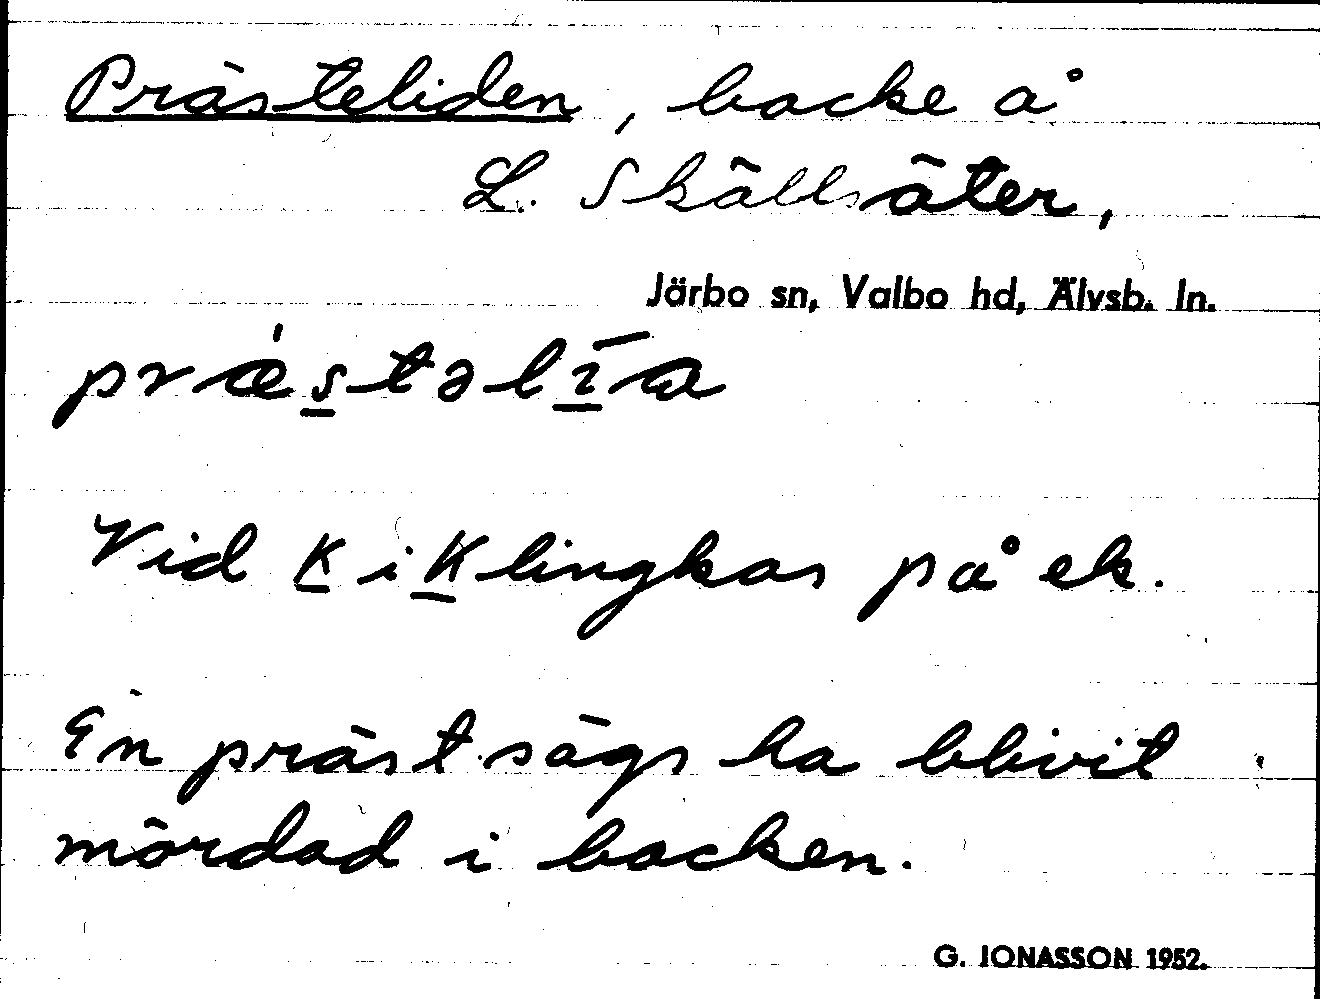 Prästeliden, backe å
L. Skällsäter,
Järbo sn, Valbo hd, Älvsb. ln.
prǽstəlīa
Vid K i Klingkas på ek.
En präst sägs ha blivit
mördad i backen.
G. JONASSON 1952.